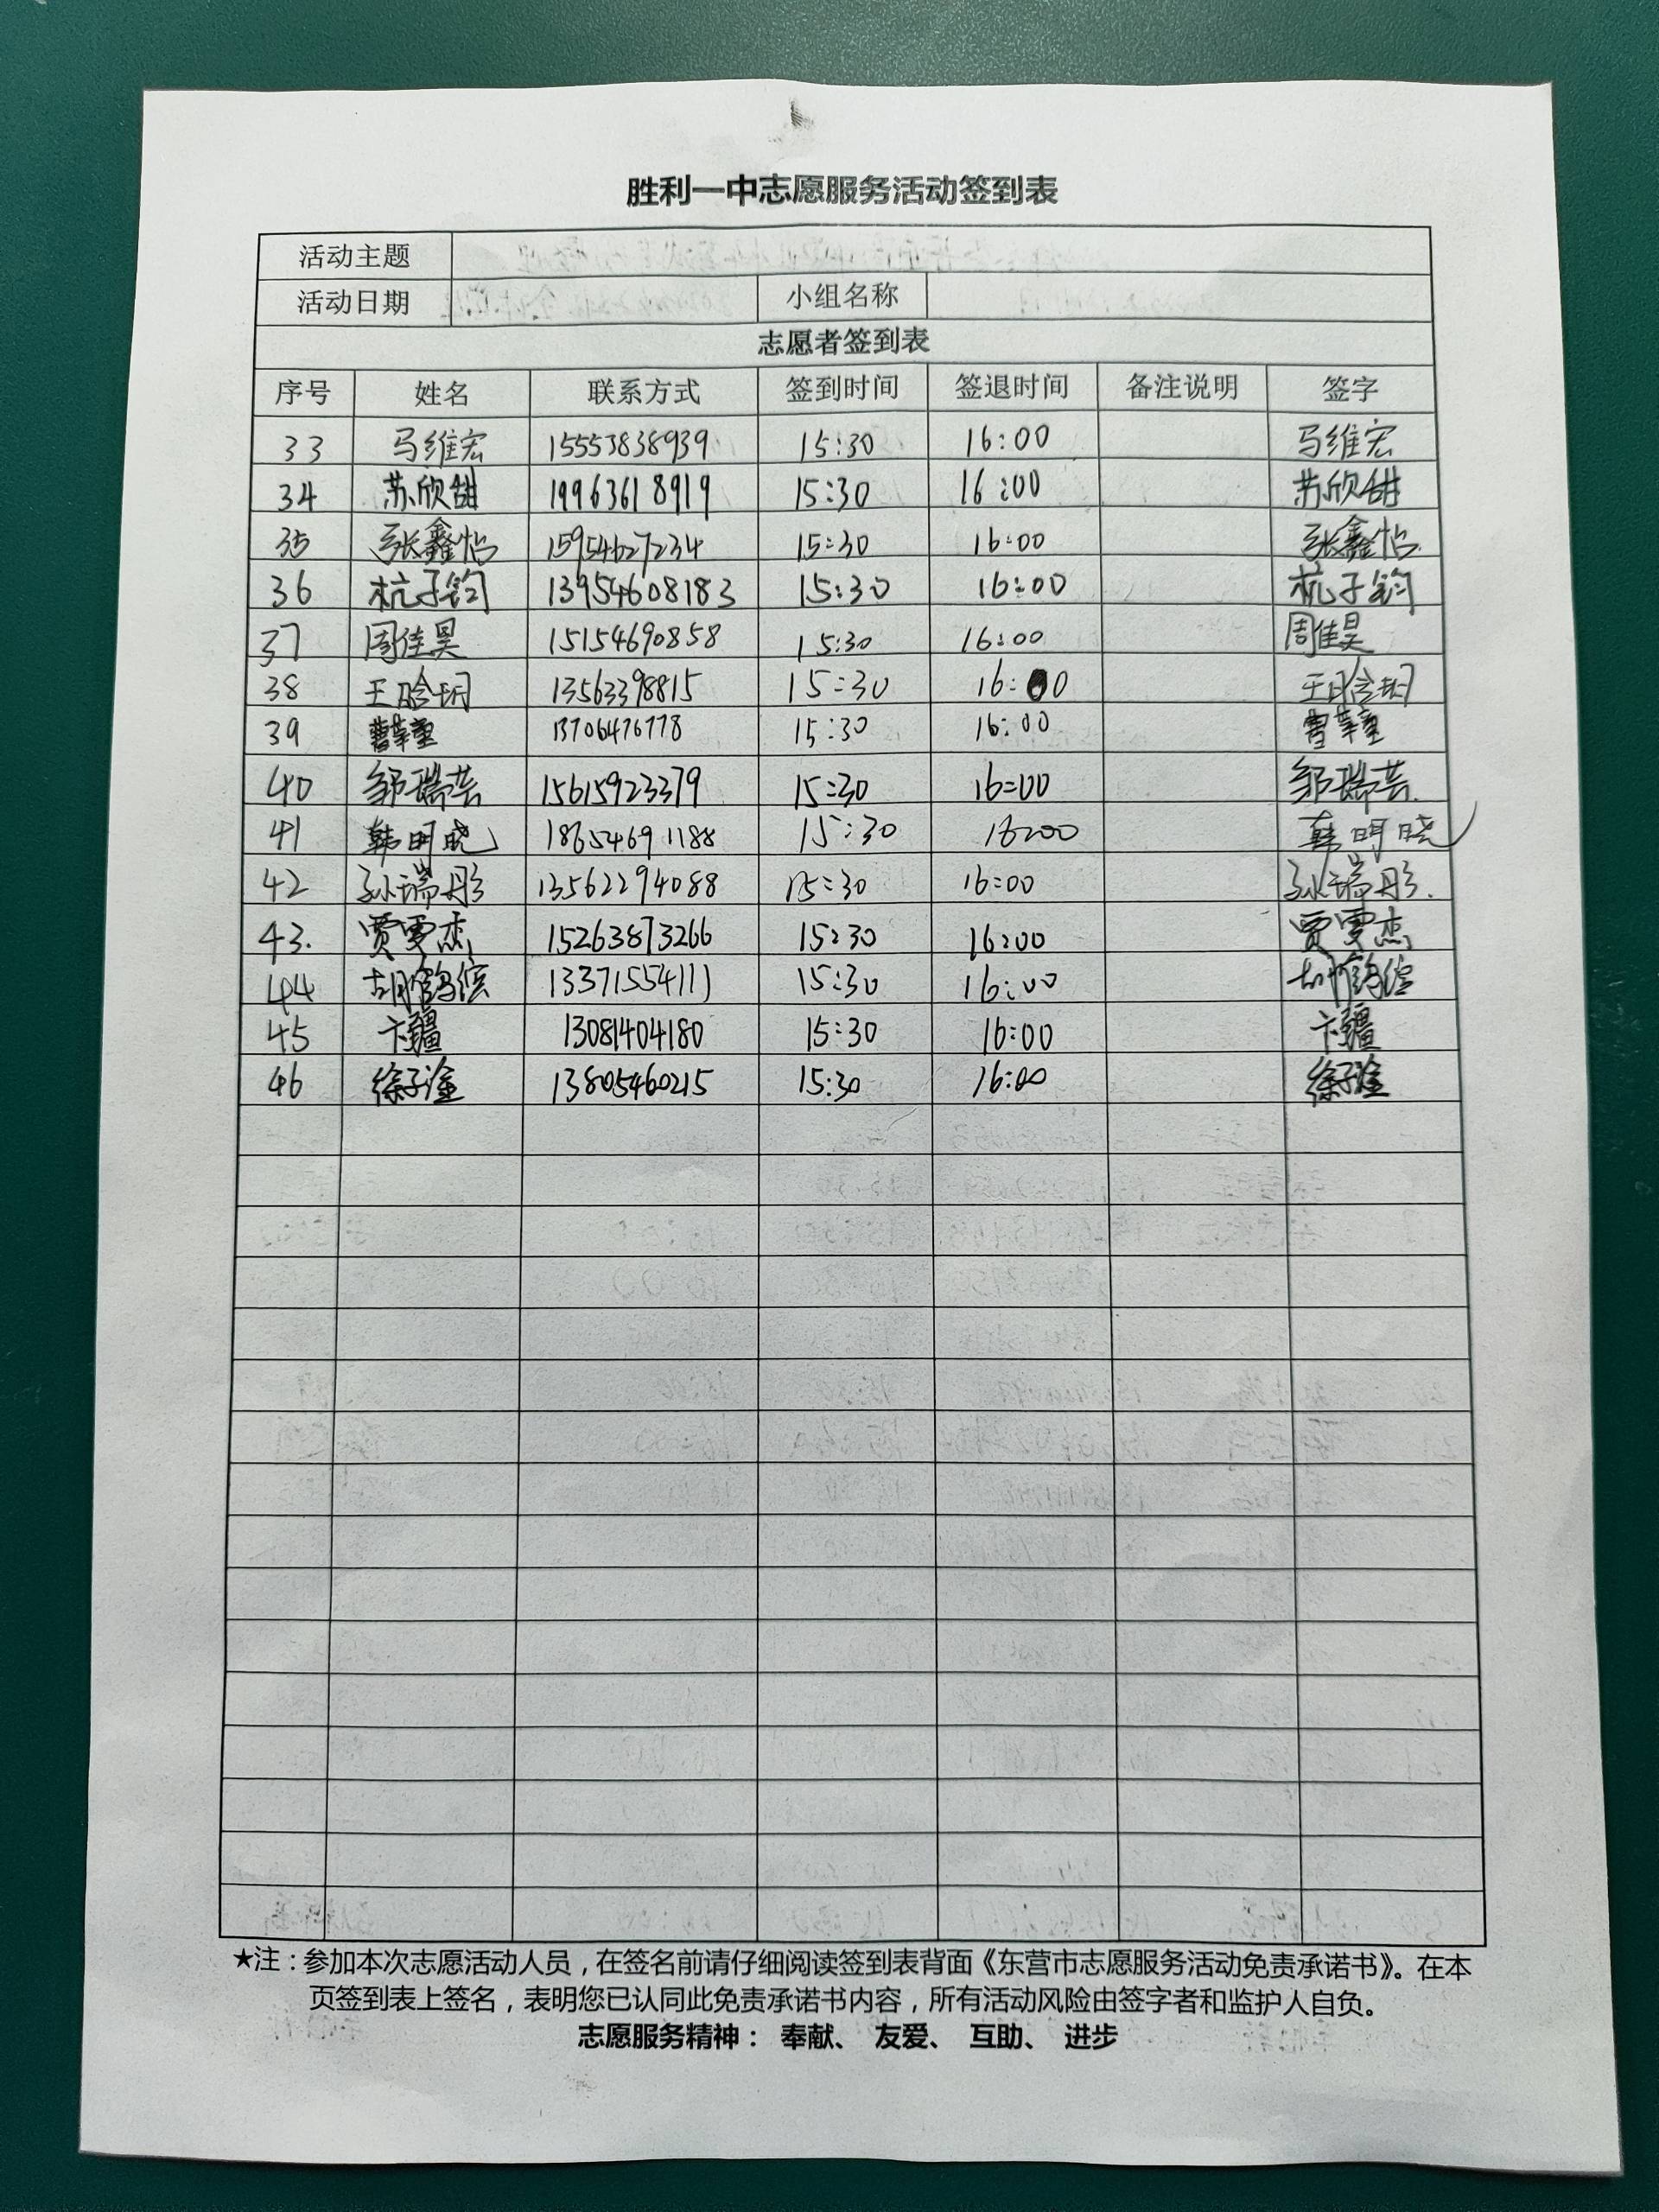 胜利一中志愿服务活动签到表
活动主题
活动日期 小组名称
志愿者签到表
序号 姓名 联系方式 签到时间 签退时间 备注说明 签字
33 马维宏 15553838939 15:30 16:00 马维宏
34 苏欣甜 19963618919 15:30 16:00 苏欣甜
35 张鑫怡 15954627234 15:30 16:00 张鑫怡
36 杭子钧 13954608183 15:30 16:00 杭子钧
37 周佳昊 15154690858 15:30 16:00 周佳昊
38 王晗玥 13563398815 15:30 16:00 王晗玥
39 13706476778 15:30 16:00
40 邹瑞芸 15615923379 15:30 16:00 邹瑞芸
41 韩明晓 18654691188 15:30 16:00 韩明晓
42 孙瑞彤 13562294088 15:30 16:00 孙瑞彤
43. 贾雯杰 15263873266 15:30 16:00 贾雯杰
44 胡鹤缤 13371554111 15:30 16:00 胡鹤缤
45 卞疆 13081404180 15:30 16:00 卞疆
46 徐子淦 13805460215 15:30 16:00 徐子淦
★注：参加本次志愿活动人员，在签名前请仔细阅读签到表背面《东营市志愿服务活动免责承诺书》。在本
页签到表上签名，表明您已认同此免责承诺书内容，所有活动风险由签字者和监护人自负。
志愿服务精神： 奉献、 友爱、 互助、 进步